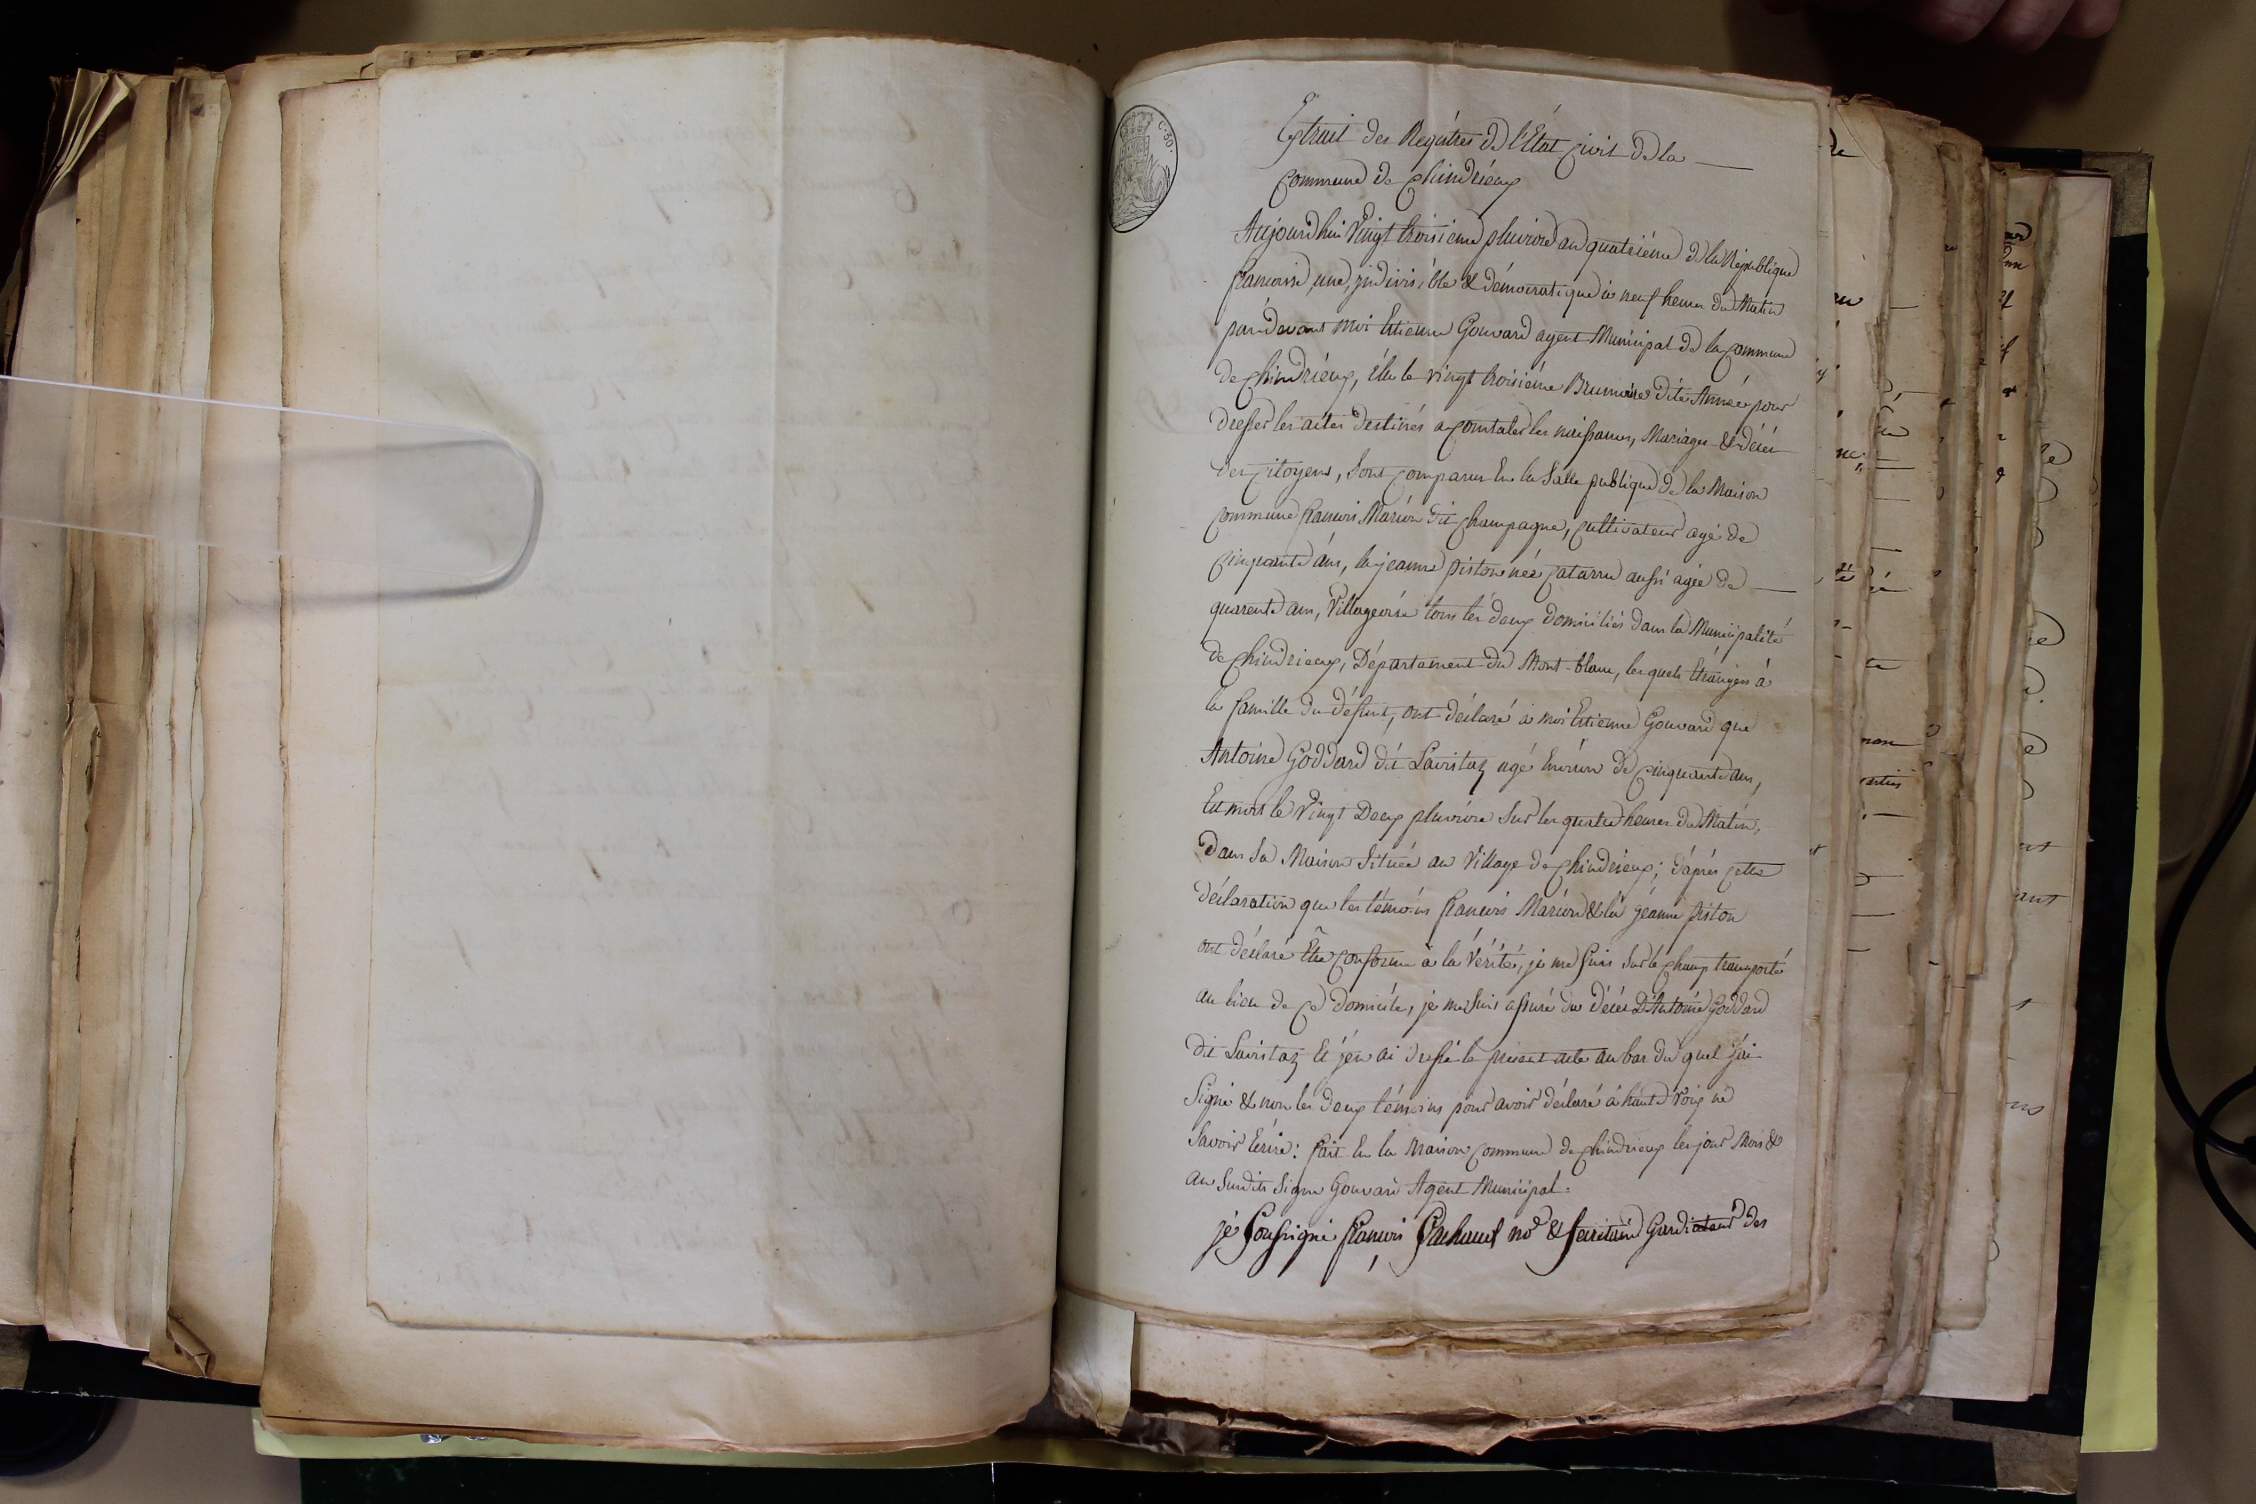 C. 30.
Extrait des Regîtres de l'Etat civil de la
commune de chindrieux
Aujourd'hui vingt troisieme pluviose an quatriéme de la République
francoise, une, indivisible & démocratique à neuf heures du Matin
pardevant moi Etienne Gouvard agent Municipal de la commune
de chindrieux, élu le vingt troisiéme Brumaire dite Année pour
dresser les actes destinés a constater les naissances, Mariages & décés
des citoyens, sont comparus En la Salle publique de la Maison
commune francois Marion dit champagne, cultivateur agé de
cinquante ans, la jeanne piston née catarru aussi agée de
quarente ans, villageoise tous les deux domiciliés dans la Municipalité
de chindrieux, Département du Mont-blanc, lesquels Etrangers à
la famille du défunt, ont déclaré à moi Etienne Gouvard que
Antoine Goddard dit Lavistaz agé Environ de cinquante ans,
Est mort le vingt Deux pluviose sur les quatre heures du Matin,
dans sa Maison située au village de chindrieux; d'après cette
déclaration que les témoins francois Marion & la jéanne piston
ont déclaré Etre conforme à la vérité, je me suis sur le champ transporté
au lieu de ce domicile, je me suis assuré du décés D'Antoine Goddard
dit Lavistaz Et j'en ai dressé le présent acte au bas du quel j'ai
signé & non les deux témoins pour avoir déclaré à haute voix ne
savoir Ecrire: fait En la Maison commune de chindrieux les jour Mois &
an susdits signé Gouvard Agent Municipal.
je soussigné francois no.e & secretaire des
re